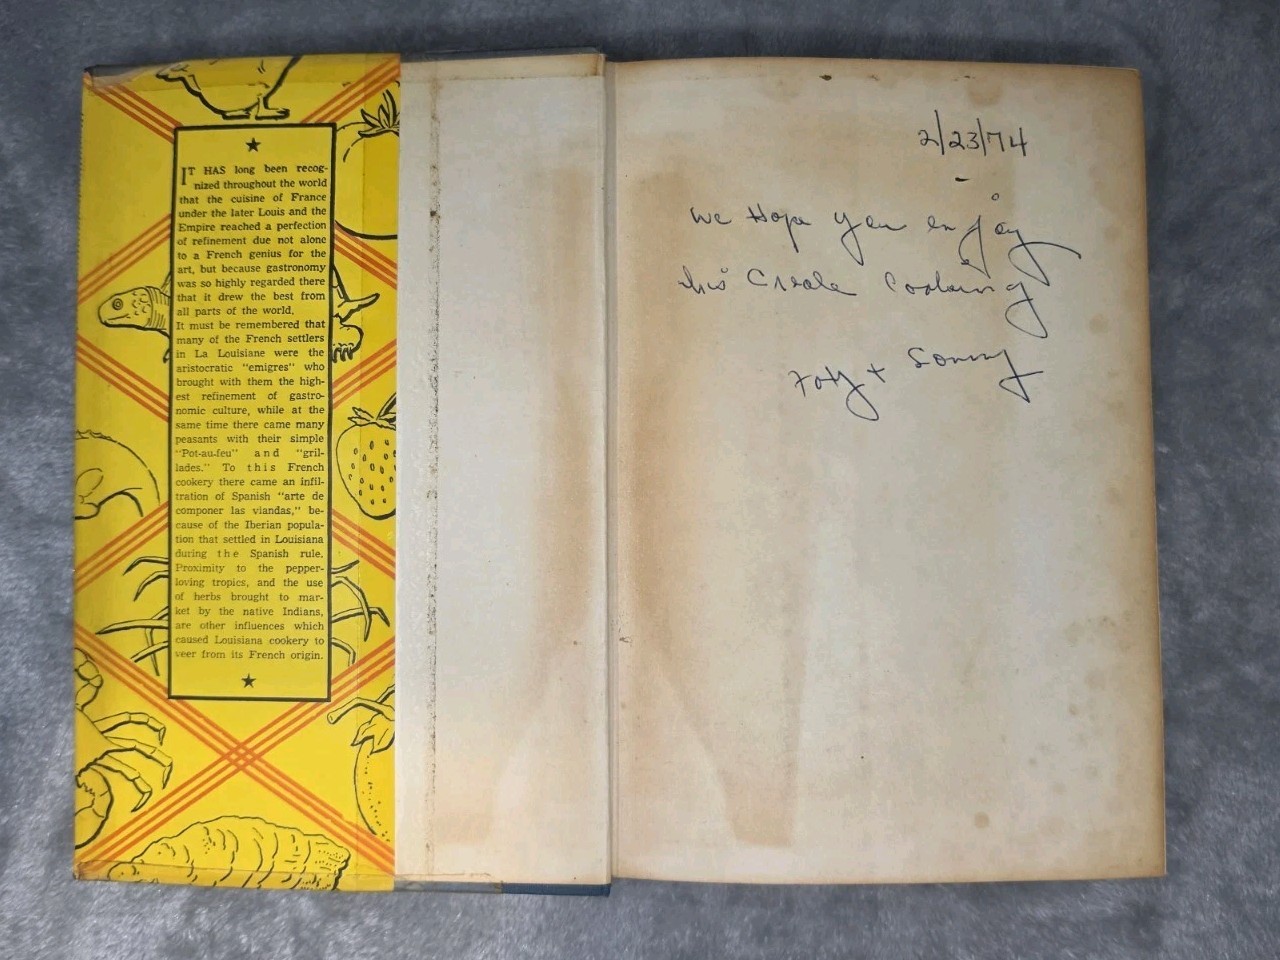 ★
IT HAS long been recog-
nized throughout the world
that the cuisine of France
under the later Louis and the
Empire reached a perfection
of refinement due not alone
to a French genius for the
art, but because gastronomy
was so highly regarded there
that it drew the best from
all parts of the world.
It must be remembered that
many of the French settlers
in La Louisiane were the
aristocratic "emigres" who
brought with them the high-
est refinement of gastro-
nomic culture, while at the
same time there came many
peasants with their simple
"Pot-au-feu" and "gril-
lades." To this French
cookery there came an infil-
tration of Spanish "arte de
componer las viandas," be-
cause of the Iberian popula-
tion that settled in Louisiana
during the Spanish rule.
Proximity to the pepper-
loving tropics, and the use
of herbs brought to mar-
ket by the native Indians,
are other influences which
caused Louisiana cookery to
veer from its French origin.
★
2/23/74
We Hope you enjoy
this Creole Cooking
+ Sonny